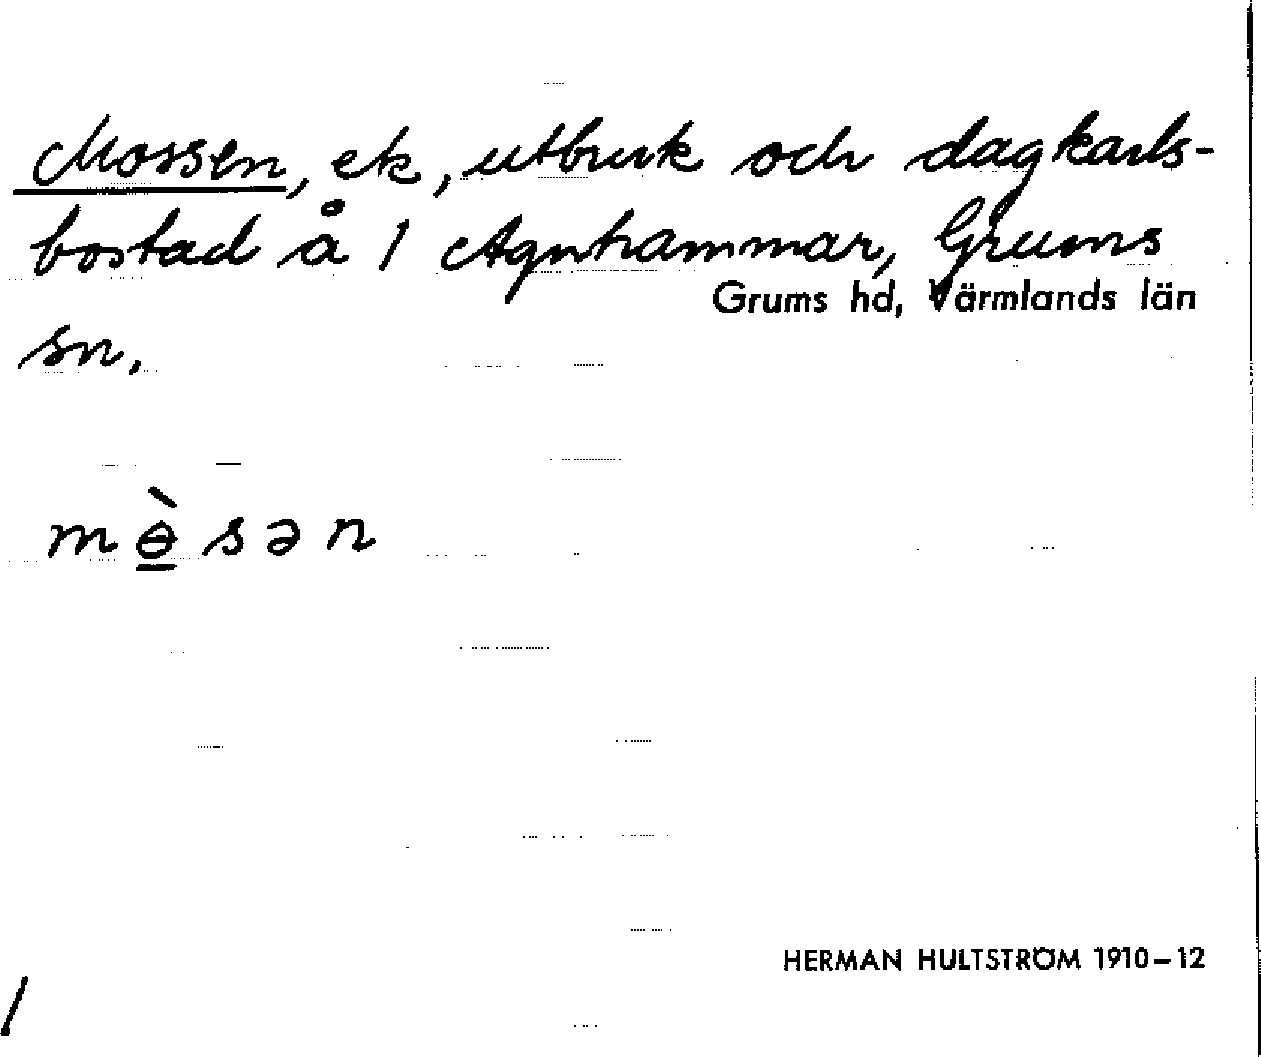 Mossen, ek, utbruk och dagkarls-
bostad å 1 Agnhammar, Grums
Grums hd, Värmlands län
sn.
mɵ̲̀sən
HERMAN HULTSTRÖM 1910–12
/